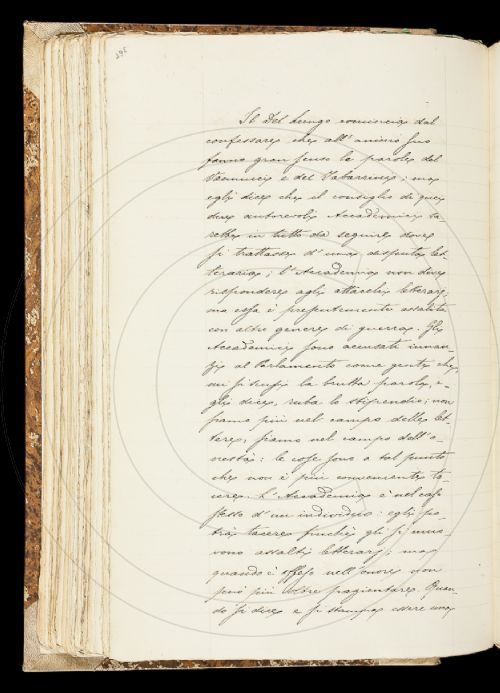 Il Del Lungo comincia dal
confessare che all'animo suo
fanno gran senso le parole del
Vannucci e del Tabarrini; ma
egli dice che il consiglio di quei
due autorevoli Accademici sa
rebbe in tutto da seguire dove
si trattasse d'una disputa let-
teraria; l'Accademia non deve
rispondere agli attacchi letterari,
ma essa è presentemente assalita
con altro genere di guerra. Gli
Accademici sono accusati innan-
zi al Parlamento come gente che,
mi si scusi la brutta parola, e-
gli dice, ruba lo stipendio; non
siamo più nel campo delle let-
tere, siamo nel campo dell'o-
nestà: le cose sono a tal punto
che non è più conveniente ta-
cere. L'Accademia è nel caso
stesso d'un individuo: egli po-
trà tacere finchè gli si muo-
vono assalti letterarj; ma
quando è offeso nell'onore non
può più oltre pazientare. Quan-
do si dice e si stampa essere una